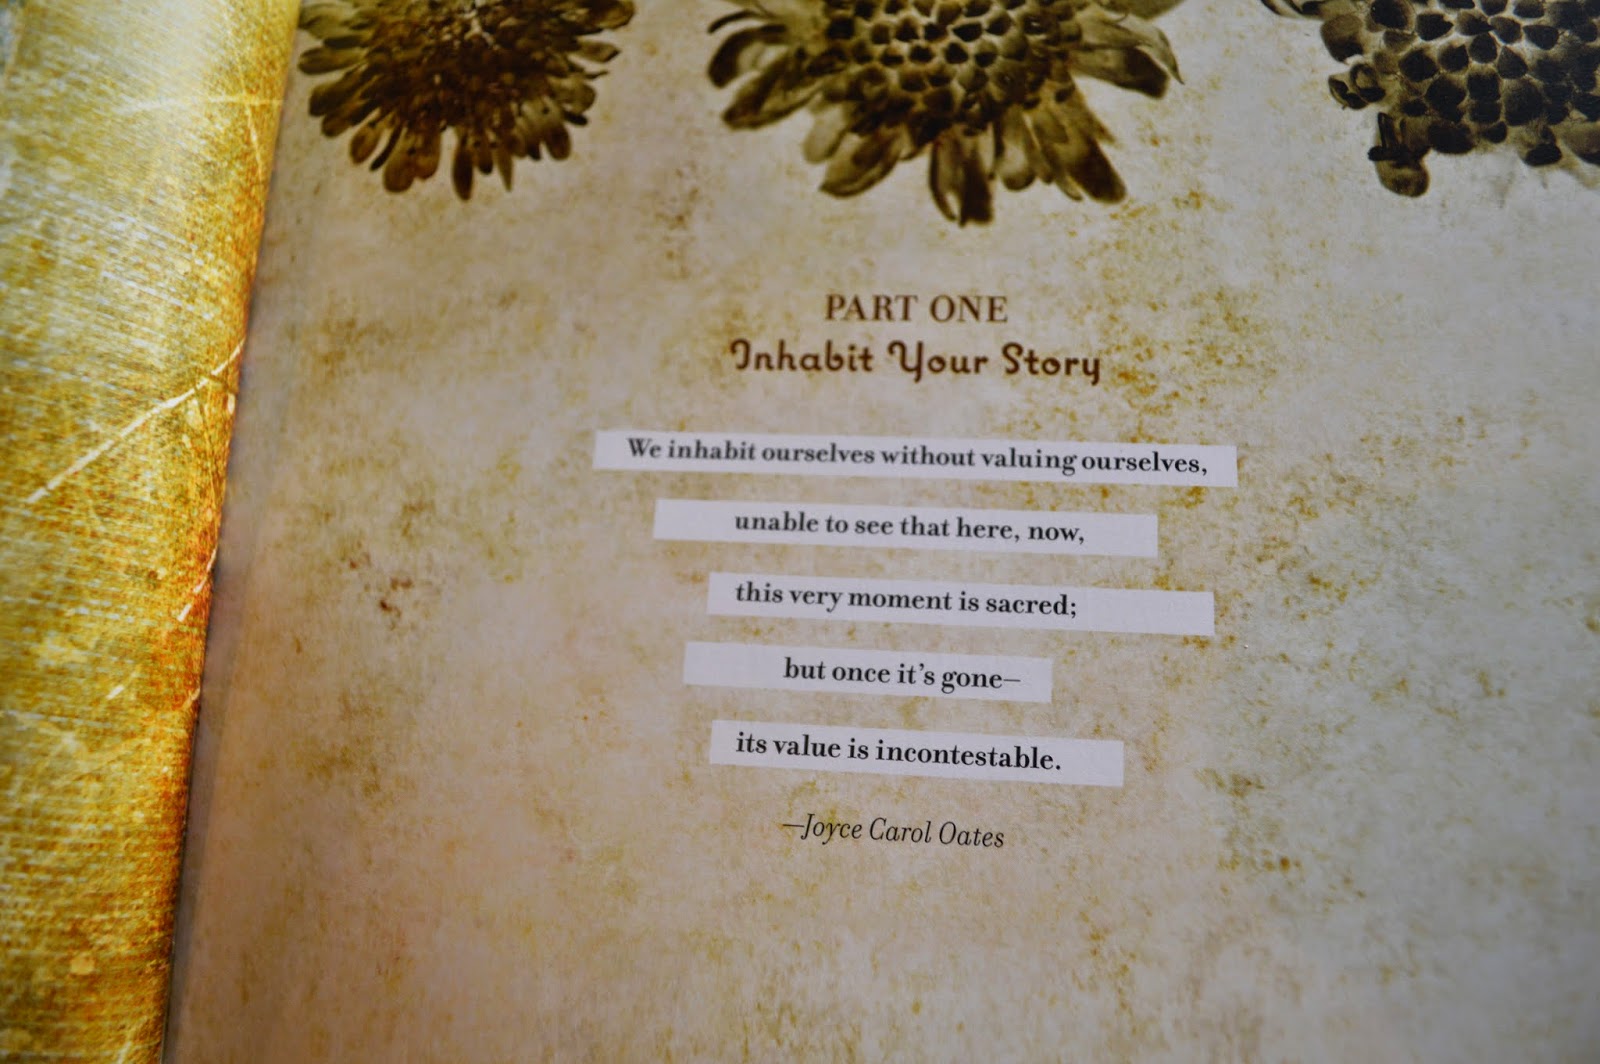 PART ONE
Inhabit Your Story
We inhabit ourselves without valuing ourselves,
unable to see that here, now,
this very moment is sacred;
but once it's gone—
its value is incontestable.
—Joyce Carol Oates